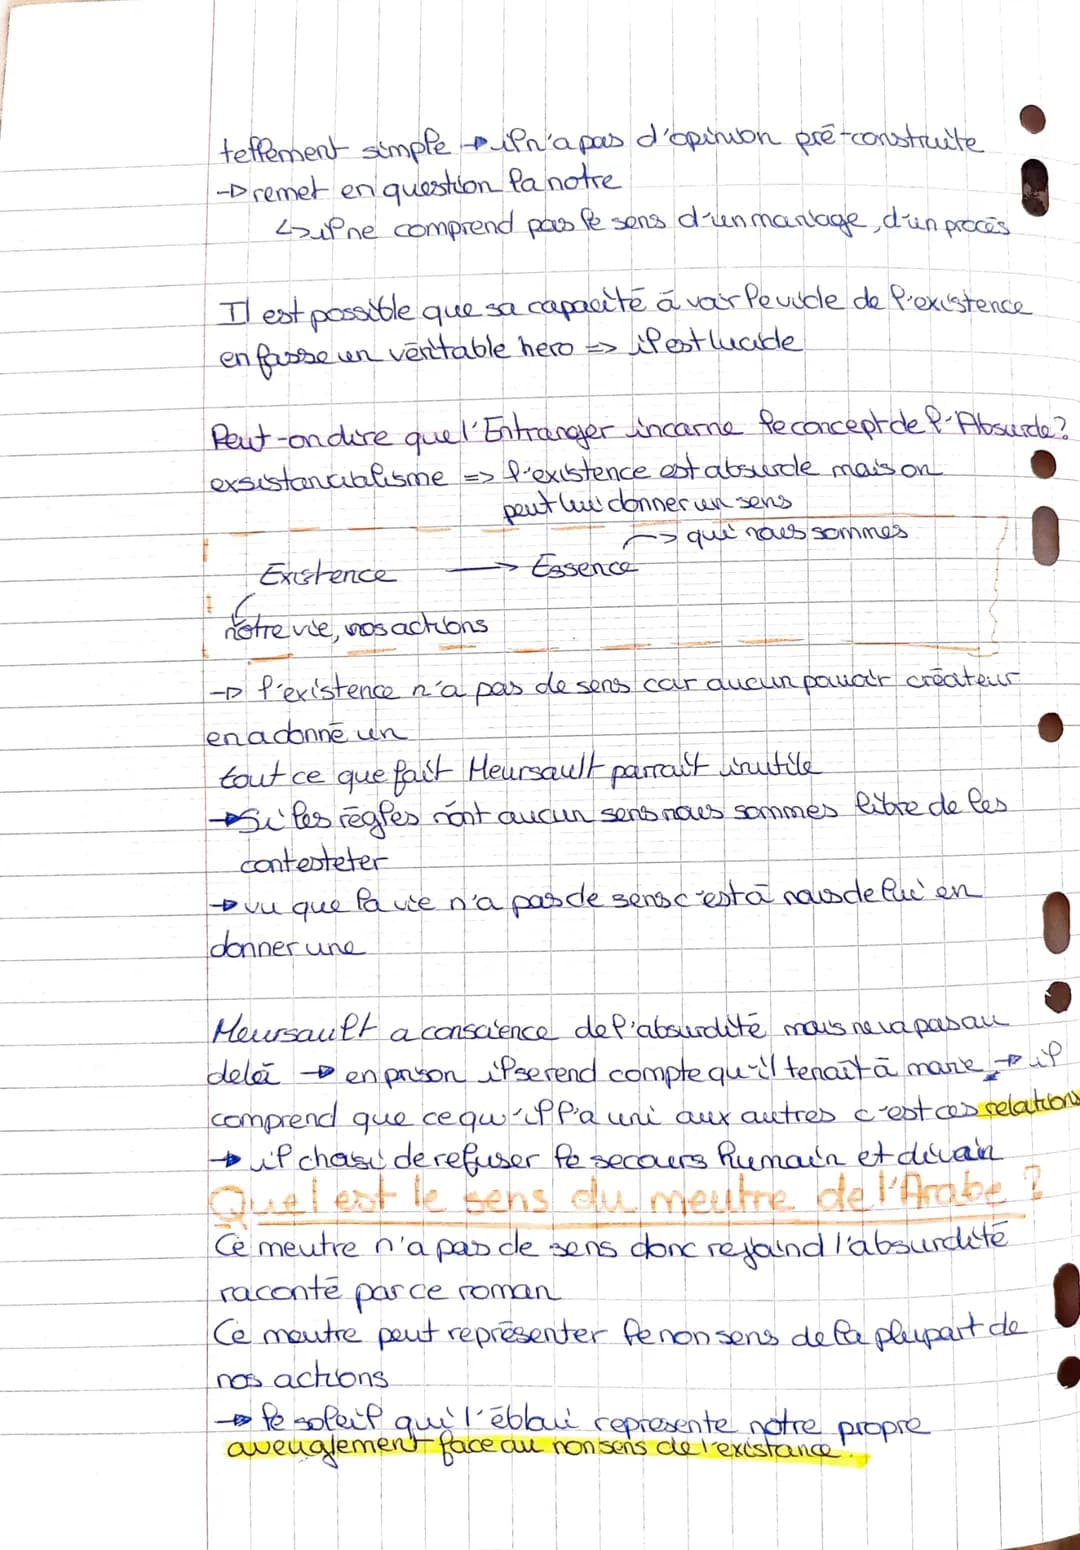 tellement simple → il n'a pas d'opinion pré-construite
→ remet en question la notre
↳ il ne comprend pas le sens d'un mariage, d'un procès
Il est possible que sa capacité à voir le vide de l'existence
en fasse un véritable hero => il est lucide
Peut-on dire que l'Entranger incarne le concept de l'Absurde?
exsistancialisme => l'existence est absurde mais on
peut lui donner un sens
→ qui nous sommes
Existence → Essence
notre vie, nos actions
→ l'existence n'a pas de sens car aucun pouvoir créateur
en a donné un
tout ce que fait Meursault parrait inutile
→ Si les règles n'ont aucun sens nous sommes libre de les
contesteter
→ vu que la vie n'a pas de sens c'est à nous de lui en
donner une
Meursault a conscience de l'absurdité mais ne va pas au
delà → en prison il se rend compte qu'il tenait à marie → il
comprend que ce qu'il l'a uni aux autres c'est ces relations
→ il choisi de refuser le secours humain et divain
Quel est le sens du meutre de l'Arabe ?
Ce meutre n'a pas de sens donc rejoind l'absurdité
raconté par ce roman
Ce meutre peut représenter le non sens de la plupart de
nos actions
→ le soleil qui l'ébloui represente notre propre
aveuglement face au non sens de l'existance.